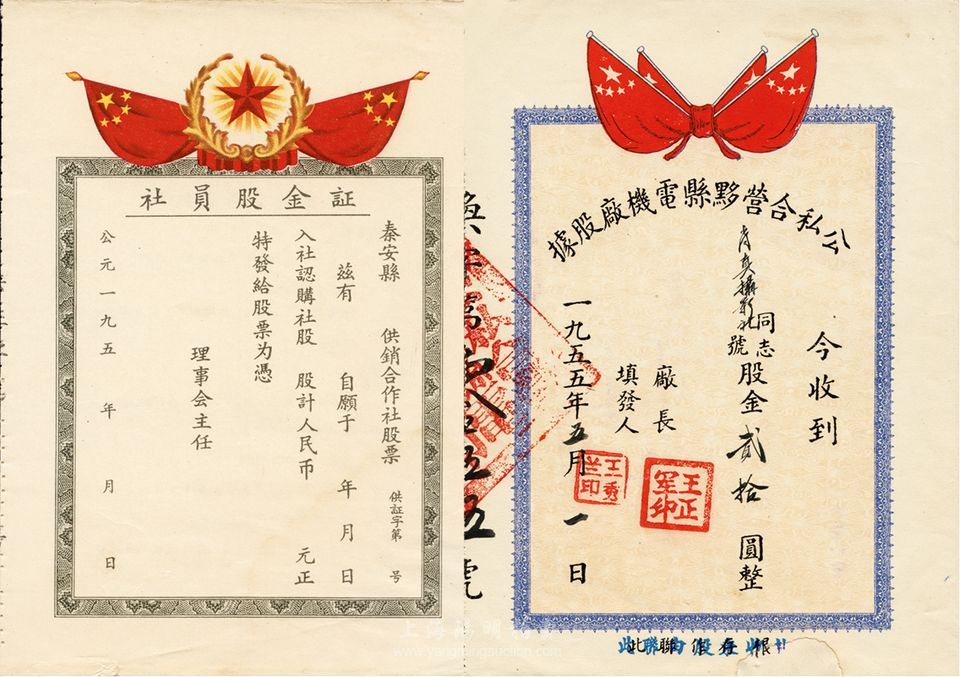 社員股金証
秦安縣 供銷合作社股票 供証字第 号
兹有 自願于 年 月 日
入社認購社股 股計人民币 元正
特發給股票为憑
理事会主任
公元一九五 年 月 日
公私合營黟縣電機廠股據
今收到
同志
號
股金貳拾圓整
廠長
填發人
王正
軍印
王秀
蘭印
一九五五年五月一日
伍號
www.yangmingauction.com